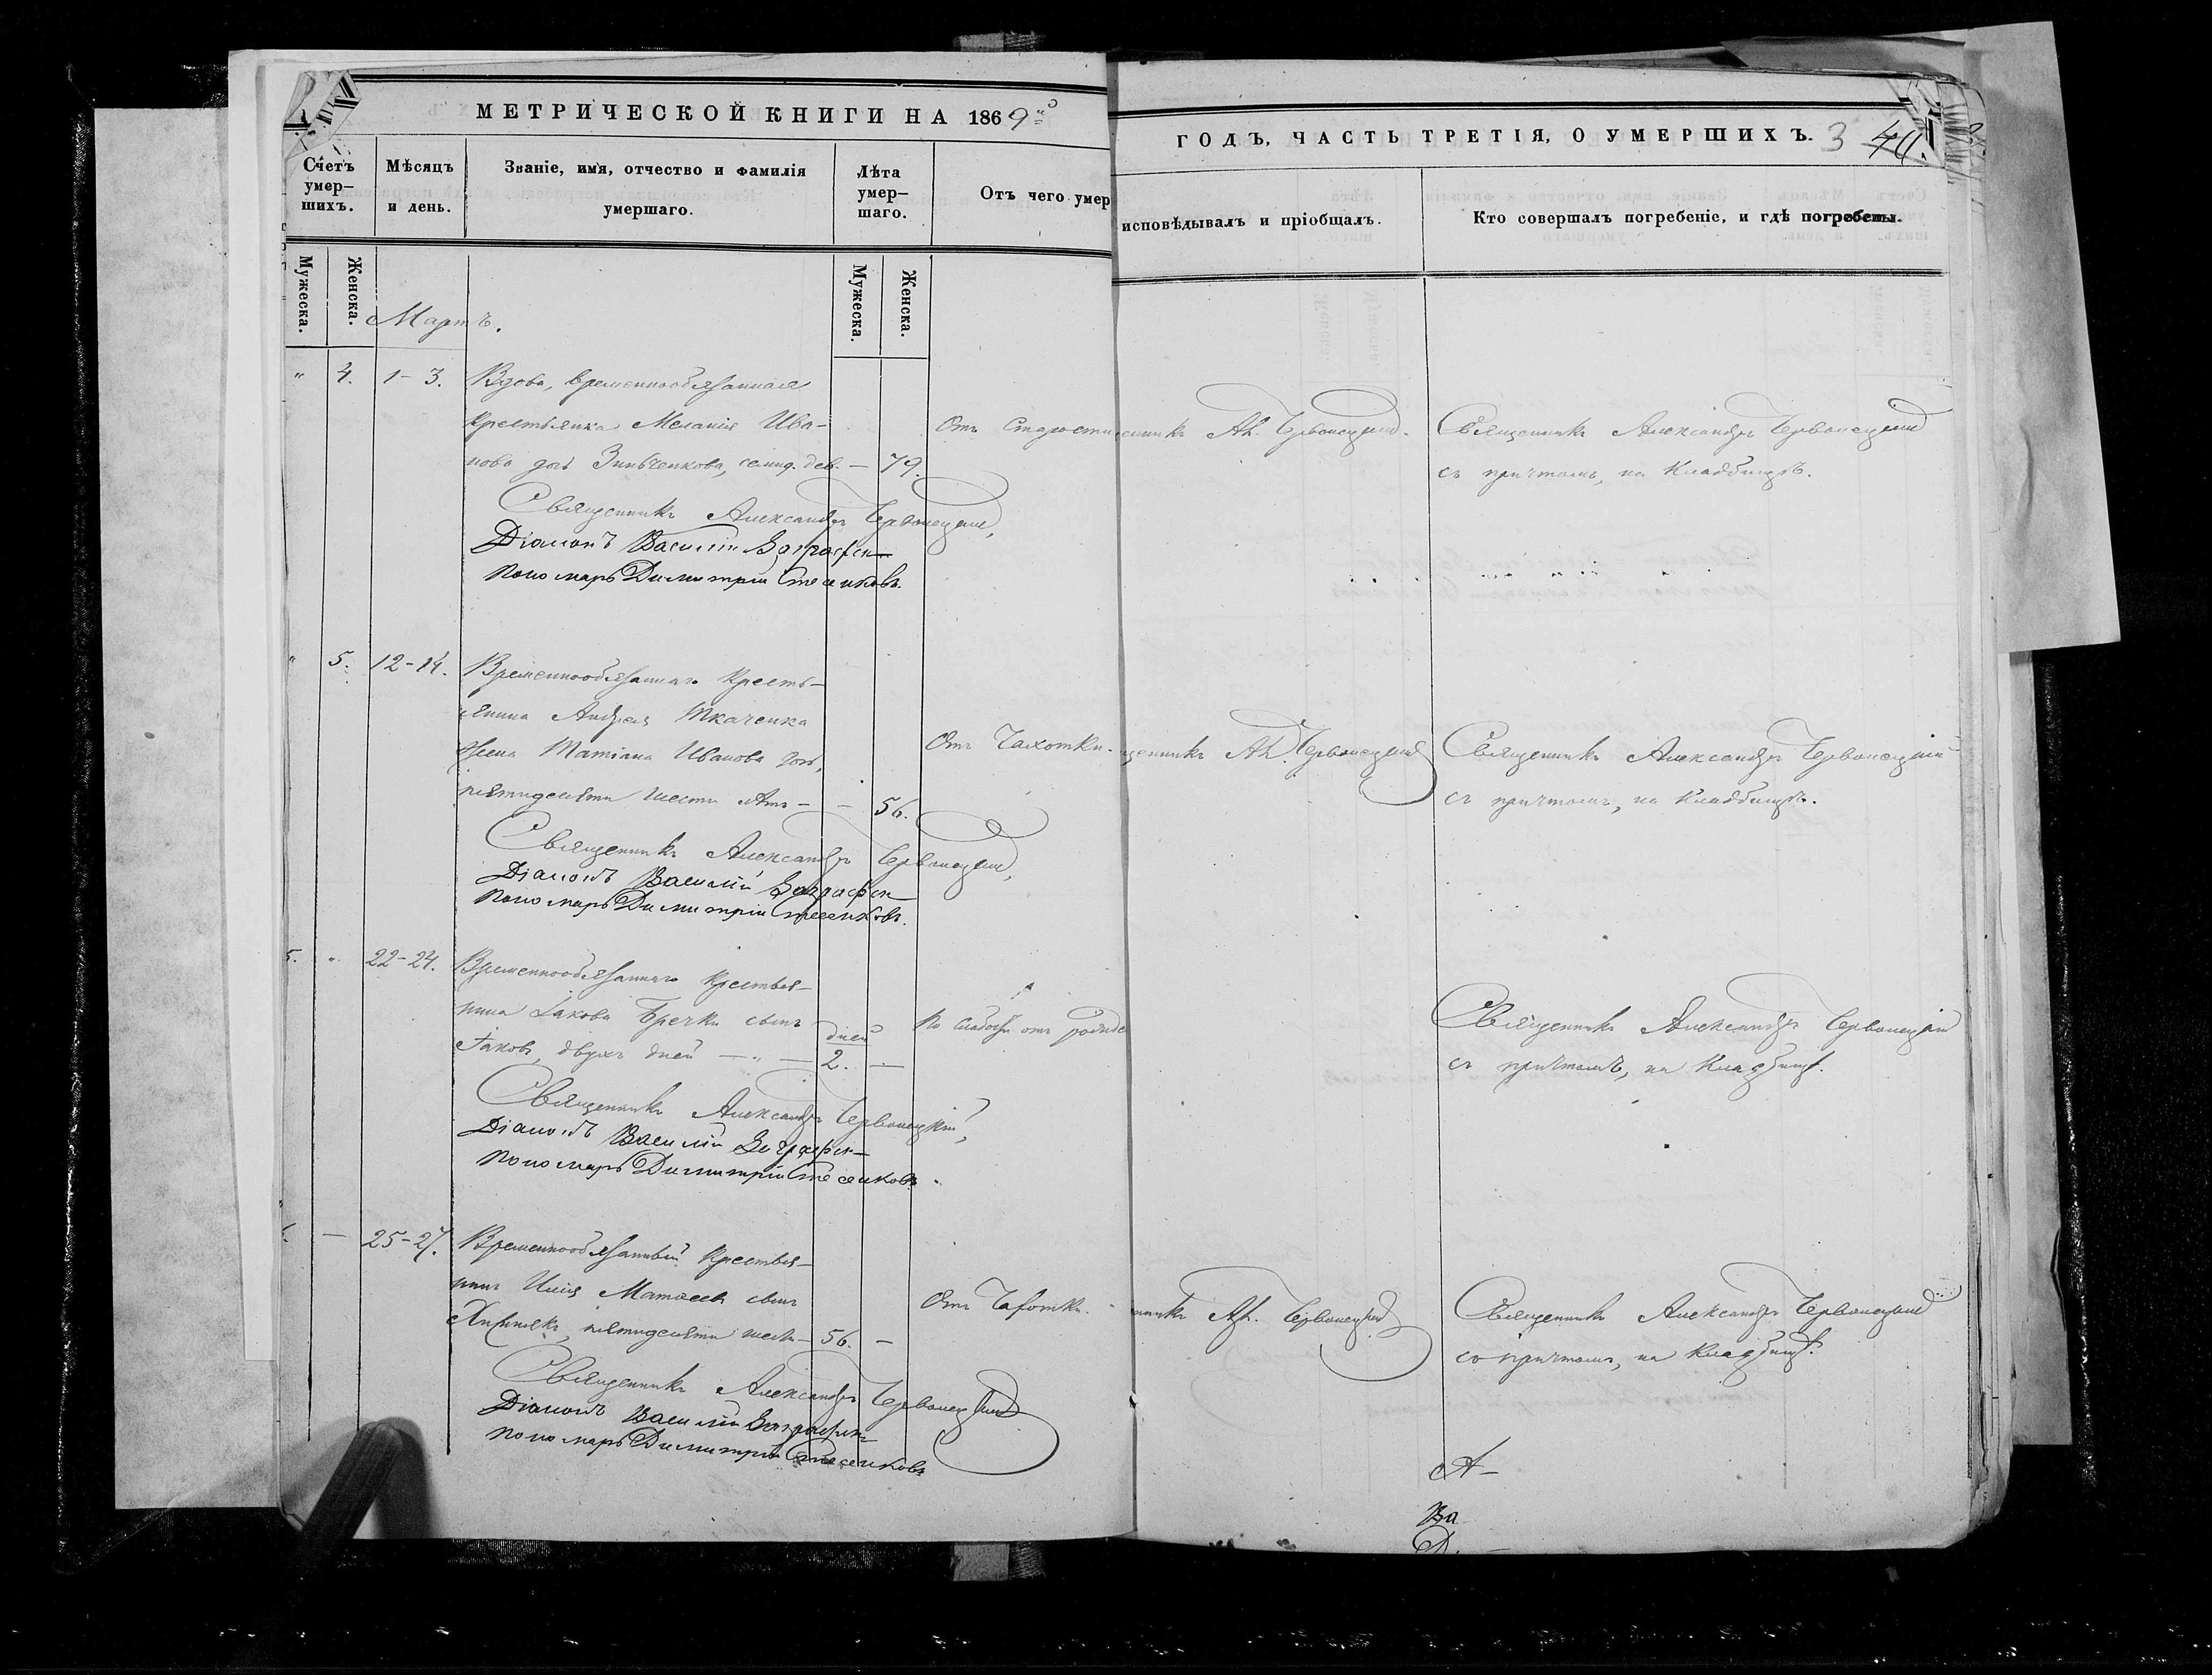 МЕТРИЧЕСКОЙ КНИГИ НА 1869
ГОДЪ, ЧАСТЬ ТРЕТІЯ, О УМЕРШИХЪ. 3 40.
Счетъ умер-шихъ.
Мѣсяцъ и день.
Званіе, имя, отчество и фамилія умершаго.
Лѣта умер-шаго.
Отъ чего умер
исповѣдывалъ и пріобщалъ.
Кто совершалъ погребеніе, и гдѣ погребены.
Мужеска.
Женска.
Мужеска.
Женска.
Мартъ.
" 4. 1-3. Вдова, временнообязанная
крестьянка Меланія Ива-
нова дочь Зинченкова, семид. дев. — 79.
Отъ старости
Священникъ Александръ Червонецкій,
Діаконъ Василій
Пономарь Димитрій
енникъ Ал. Червонецкій.
Священникъ Александръ Червонецкій
съ причтомъ, на кладбищѣ.
" 5. 12-14. Временнообязаннаго кресть-
янина Андрея Ткаченка
жена Татіана Иванова дочь,
пятидесяти шести лѣтъ - - 56.
Отъ чахотки.
Священникъ Александръ Червонецкій,
Діаконъ Василій
Пономарь Димитрій
щенникъ Ал. Червонецкій
Священникъ Александръ Червонецкій
съ причтомъ, на кладбищѣ.
5. " 22-24. Временнообязаннаго крестья-
нина Іакова Бречки сынъ
Іаковъ, двухъ дней — " — дней 2. —
По слабости отъ рожде
Священникъ Александръ Червонецкій,
Діаконъ Василій
Пономарь Димитрій
Священникъ Александръ Червонецкій
съ причтомъ, на кладбищѣ.
— 25-27. Временнообязанный крестья-
нинъ Илія Матѳеевъ сынъ
пятидесяти шести - 56. —
Отъ чахотки.
Священникъ Александръ Червонецкій
Діаконъ Василій
Пономарь Димитрій
никъ Ал. Червонецкій
Священникъ Александръ Червонецкій
съ причтомъ, на кладбищѣ.
А-
Ва
Д. -